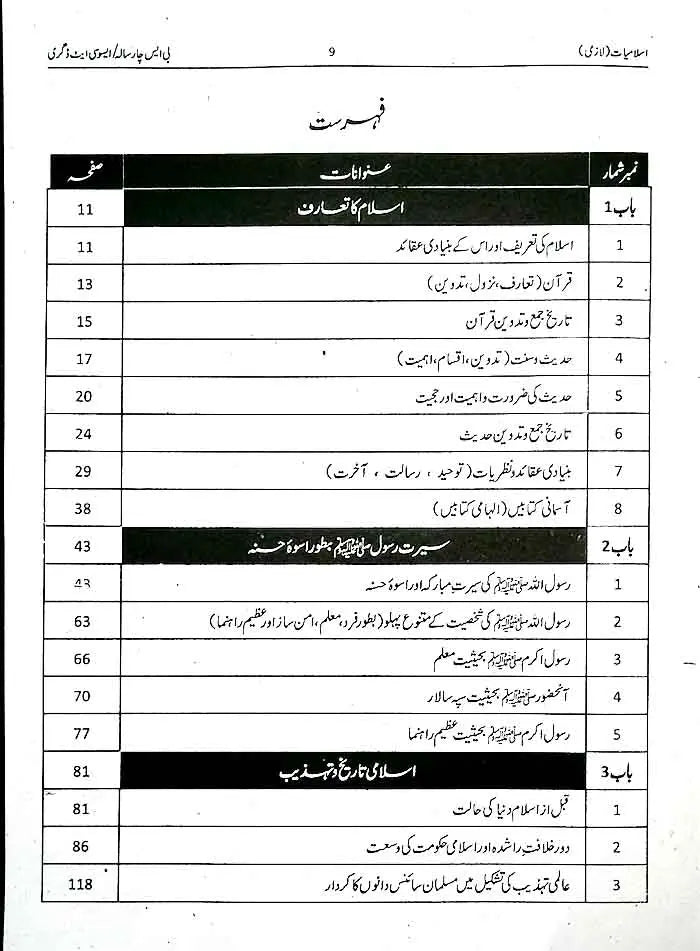 اسلامیات (لازمی) 9 بی ایس چار سالہ/ ایسوسی ایٹ ڈگری
فہرست
نمبر شمار عنوانات صفحہ
باب 1 اسلام کا تعارف 11
1 اسلام کی تعریف اور اس کے بنیادی عقائد 11
2 قرآن (تعارف، نزول، تدوین) 13
3 تاریخ جمع و تدوین قرآن 15
4 حدیث و سنت (تدوین، اقسام، اہمیت) 17
5 حدیث کی ضرورت و اہمیت اور حجیت 20
6 تاریخ جمع و تدوین حدیث 24
7 بنیادی عقائد و نظریات (توحید ، رسالت ، آخرت) 29
8 آسمانی کتابیں (الہامی کتابیں) 38
باب 2 سیرت رسول ﷺ بطور اسوۂ حسنہ 43
1 رسول اللہ ﷺ کی سیرتِ مبارکہ اور اسوۂ حسنہ 43
2 رسول اللہ ﷺ کی شخصیت کے متنوع پہلو (بطور فرد، معلم، امن ساز اور عظیم راہنما) 63
3 رسول اکرم ﷺ بحیثیت معلم 66
4 آنحضور ﷺ بحیثیت سپہ سالار 70
5 رسول اکرم ﷺ بحیثیت عظیم راہنما 77
باب 3 اسلامی تاریخ و تہذیب 81
1 قبل از اسلام دنیا کی حالت 81
2 دور خلافتِ راشدہ اور اسلامی حکومت کی وسعت 86
3 عالمی تہذیب کی تشکیل میں مسلمان سائنس دانوں کا کردار 118